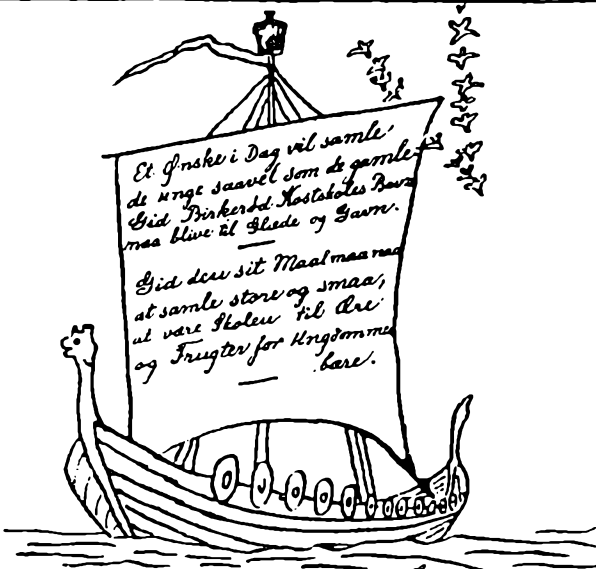 Et Ønske i Dag vil samle
de unge saavel som de gamle
Gid Birkerød Kostskoles Bavn
maa blive til Glæde og Gavn.
Gid den sit Maal maa naa
at samle store og smaa,
at være Skolen til Ære
og Frugter for Ungdommen
bære.